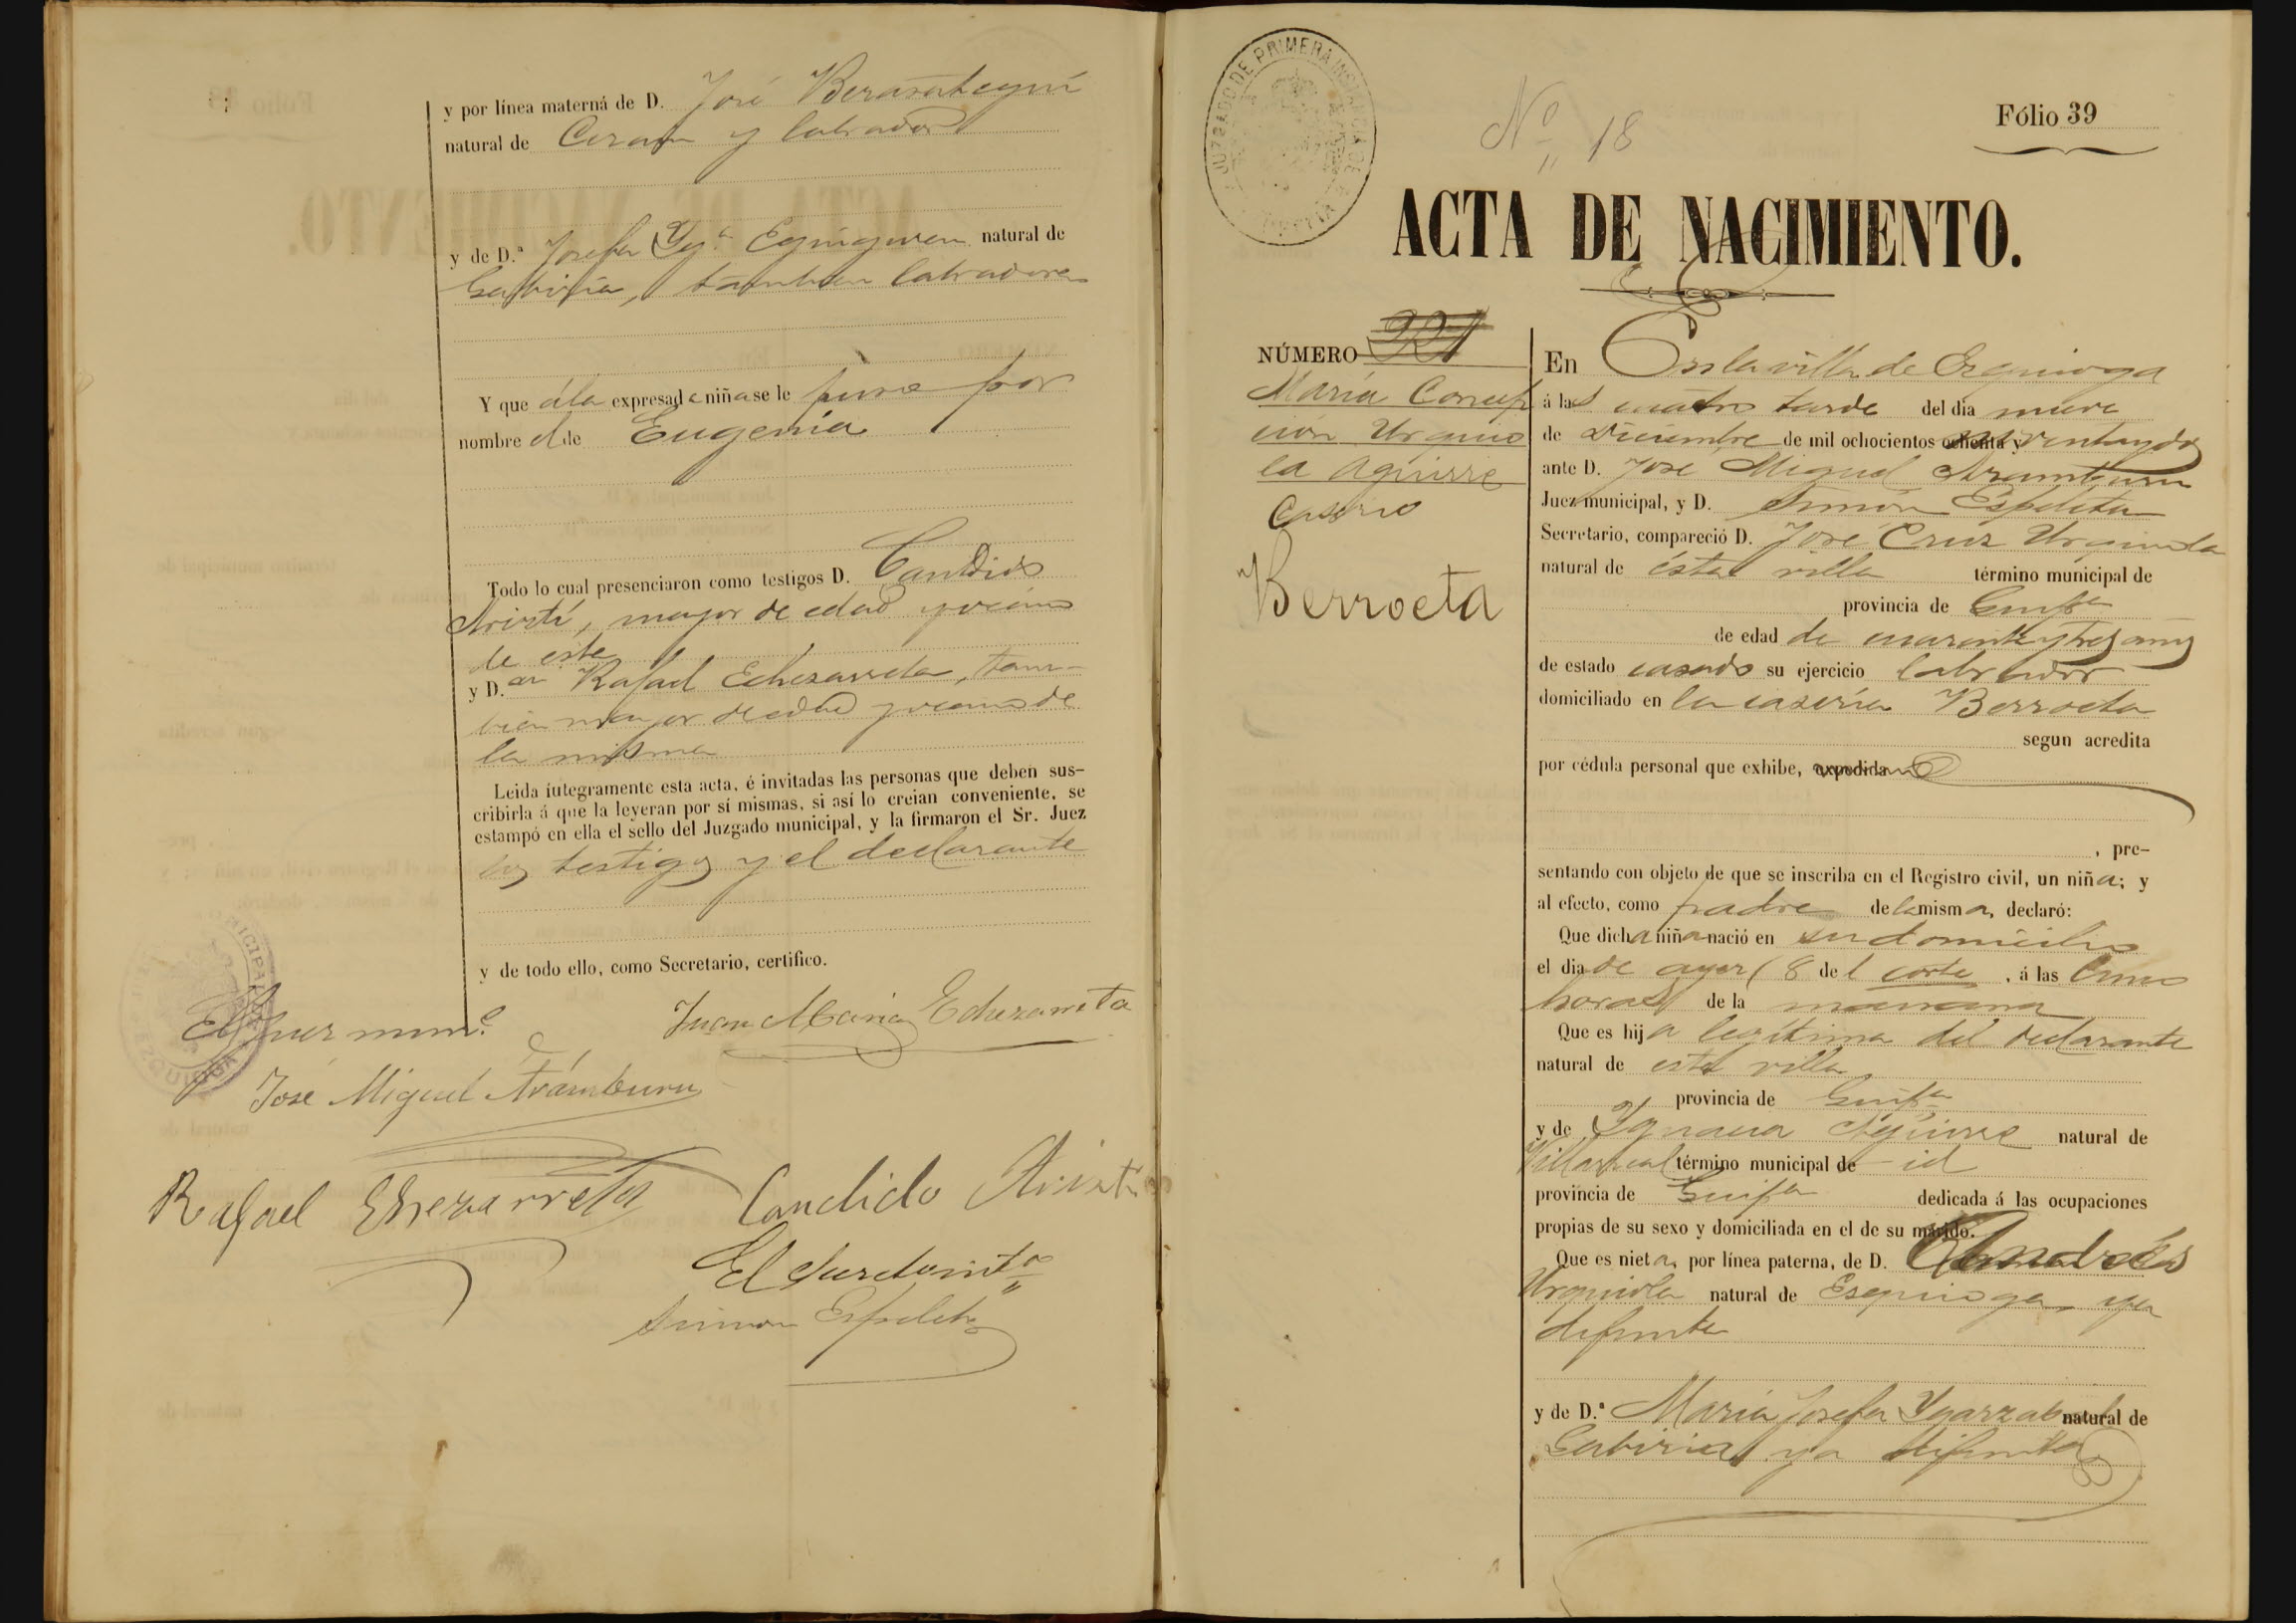 y por línea materna de D. José Berasategui
natural de Cerain y labrador
y de D.ª Josefa Yg.ª Eguiguren natural de
Gabiria, tambien labradores
Y que á la expresada niña se le puso por
nombre el de Eugenia
Todo lo cual presenciaron como testigos D. Candido
Aristi, mayor de edad y vecino
de esta
y D.on Rafael Echezarreta, tam-
bien mayor de edad y vecino de
la misma
Leida íntegramente esta acta, é invitadas las personas que deben sus-
cribirla á que la leyeran por sí mismas, si así lo creian conveniente, se
estampó en ella el sello del Juzgado municipal, y la firmaron el Sr. Juez
los testigos y el declarante
y de todo ello, como Secretario, certifico.
El Juez mun.l
Juan Maria Echezarreta
José Miguel Aramburu
Rafael Echezarreta
Candido Aristi
El Secretario
Simon Espeleta
JUZGADO DE PRIMERA INSTANCIA DE AZPEITIA
Nº 18
Fólio 39
ACTA DE NACIMIENTO.
NÚMERO 321
María Concep
cion Urquio
la Aguirre
Caserio
Berroeta
En En la villa de Ezquioga
á las cuatro tarde del dia nueve
de Diciembre de mil ochocientos ochenta y noventa y dos
ante D. José Miguel Aramburu
Juez municipal, y D. Simón Espeleta
Secretario, compareció D. José Cruz Urquiola
natural de ésta villa término municipal de
provincia de Guipª
de edad de cuarenta y tres años
de estado casado su ejercicio labrador
domiciliado en la caseria Berroeta
segun acredita
por cédula personal que exhibe, expedida
, pre-
sentando con objeto de que se inscriba en el Registro civil, un niña; y
al efecto, como padre de la misma, declaró:
Que dicha niña nació en su domicilio
el dia de ayer (8 del corte , á las cinco
horas de la mañana
Que es hija legítima del declarante
natural de esta villa
provincia de Guipª
y de Ygnacia Aguirre natural de
Villarreal término municipal de id
provincia de Guipª dedicada á las ocupaciones
propias de su sexo y domiciliada en el de su marido.
Que es nieta, por línea paterna, de D. Andrés
Urquiola natural de Esquioga ya
difunto
y de D.ª María Josefa Ygarzabal natural de
Gabiria ya difunta